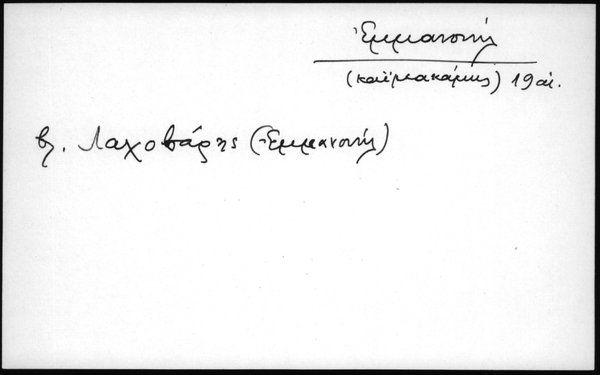 Ἐμμανουήλ
(καϊμακάμης) 19 αἰ.
βλ. Λαχοβάρης (Ἐμμανουήλ)